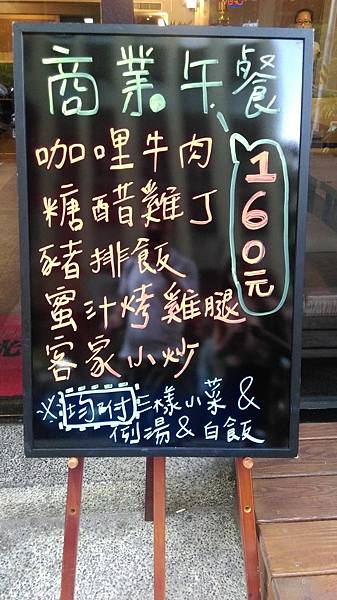 商業午餐
160元
咖哩牛肉
糖醋雞丁
豬排飯
蜜汁烤雞腿
客家小炒
※均附三樣小菜&
例湯&白飯